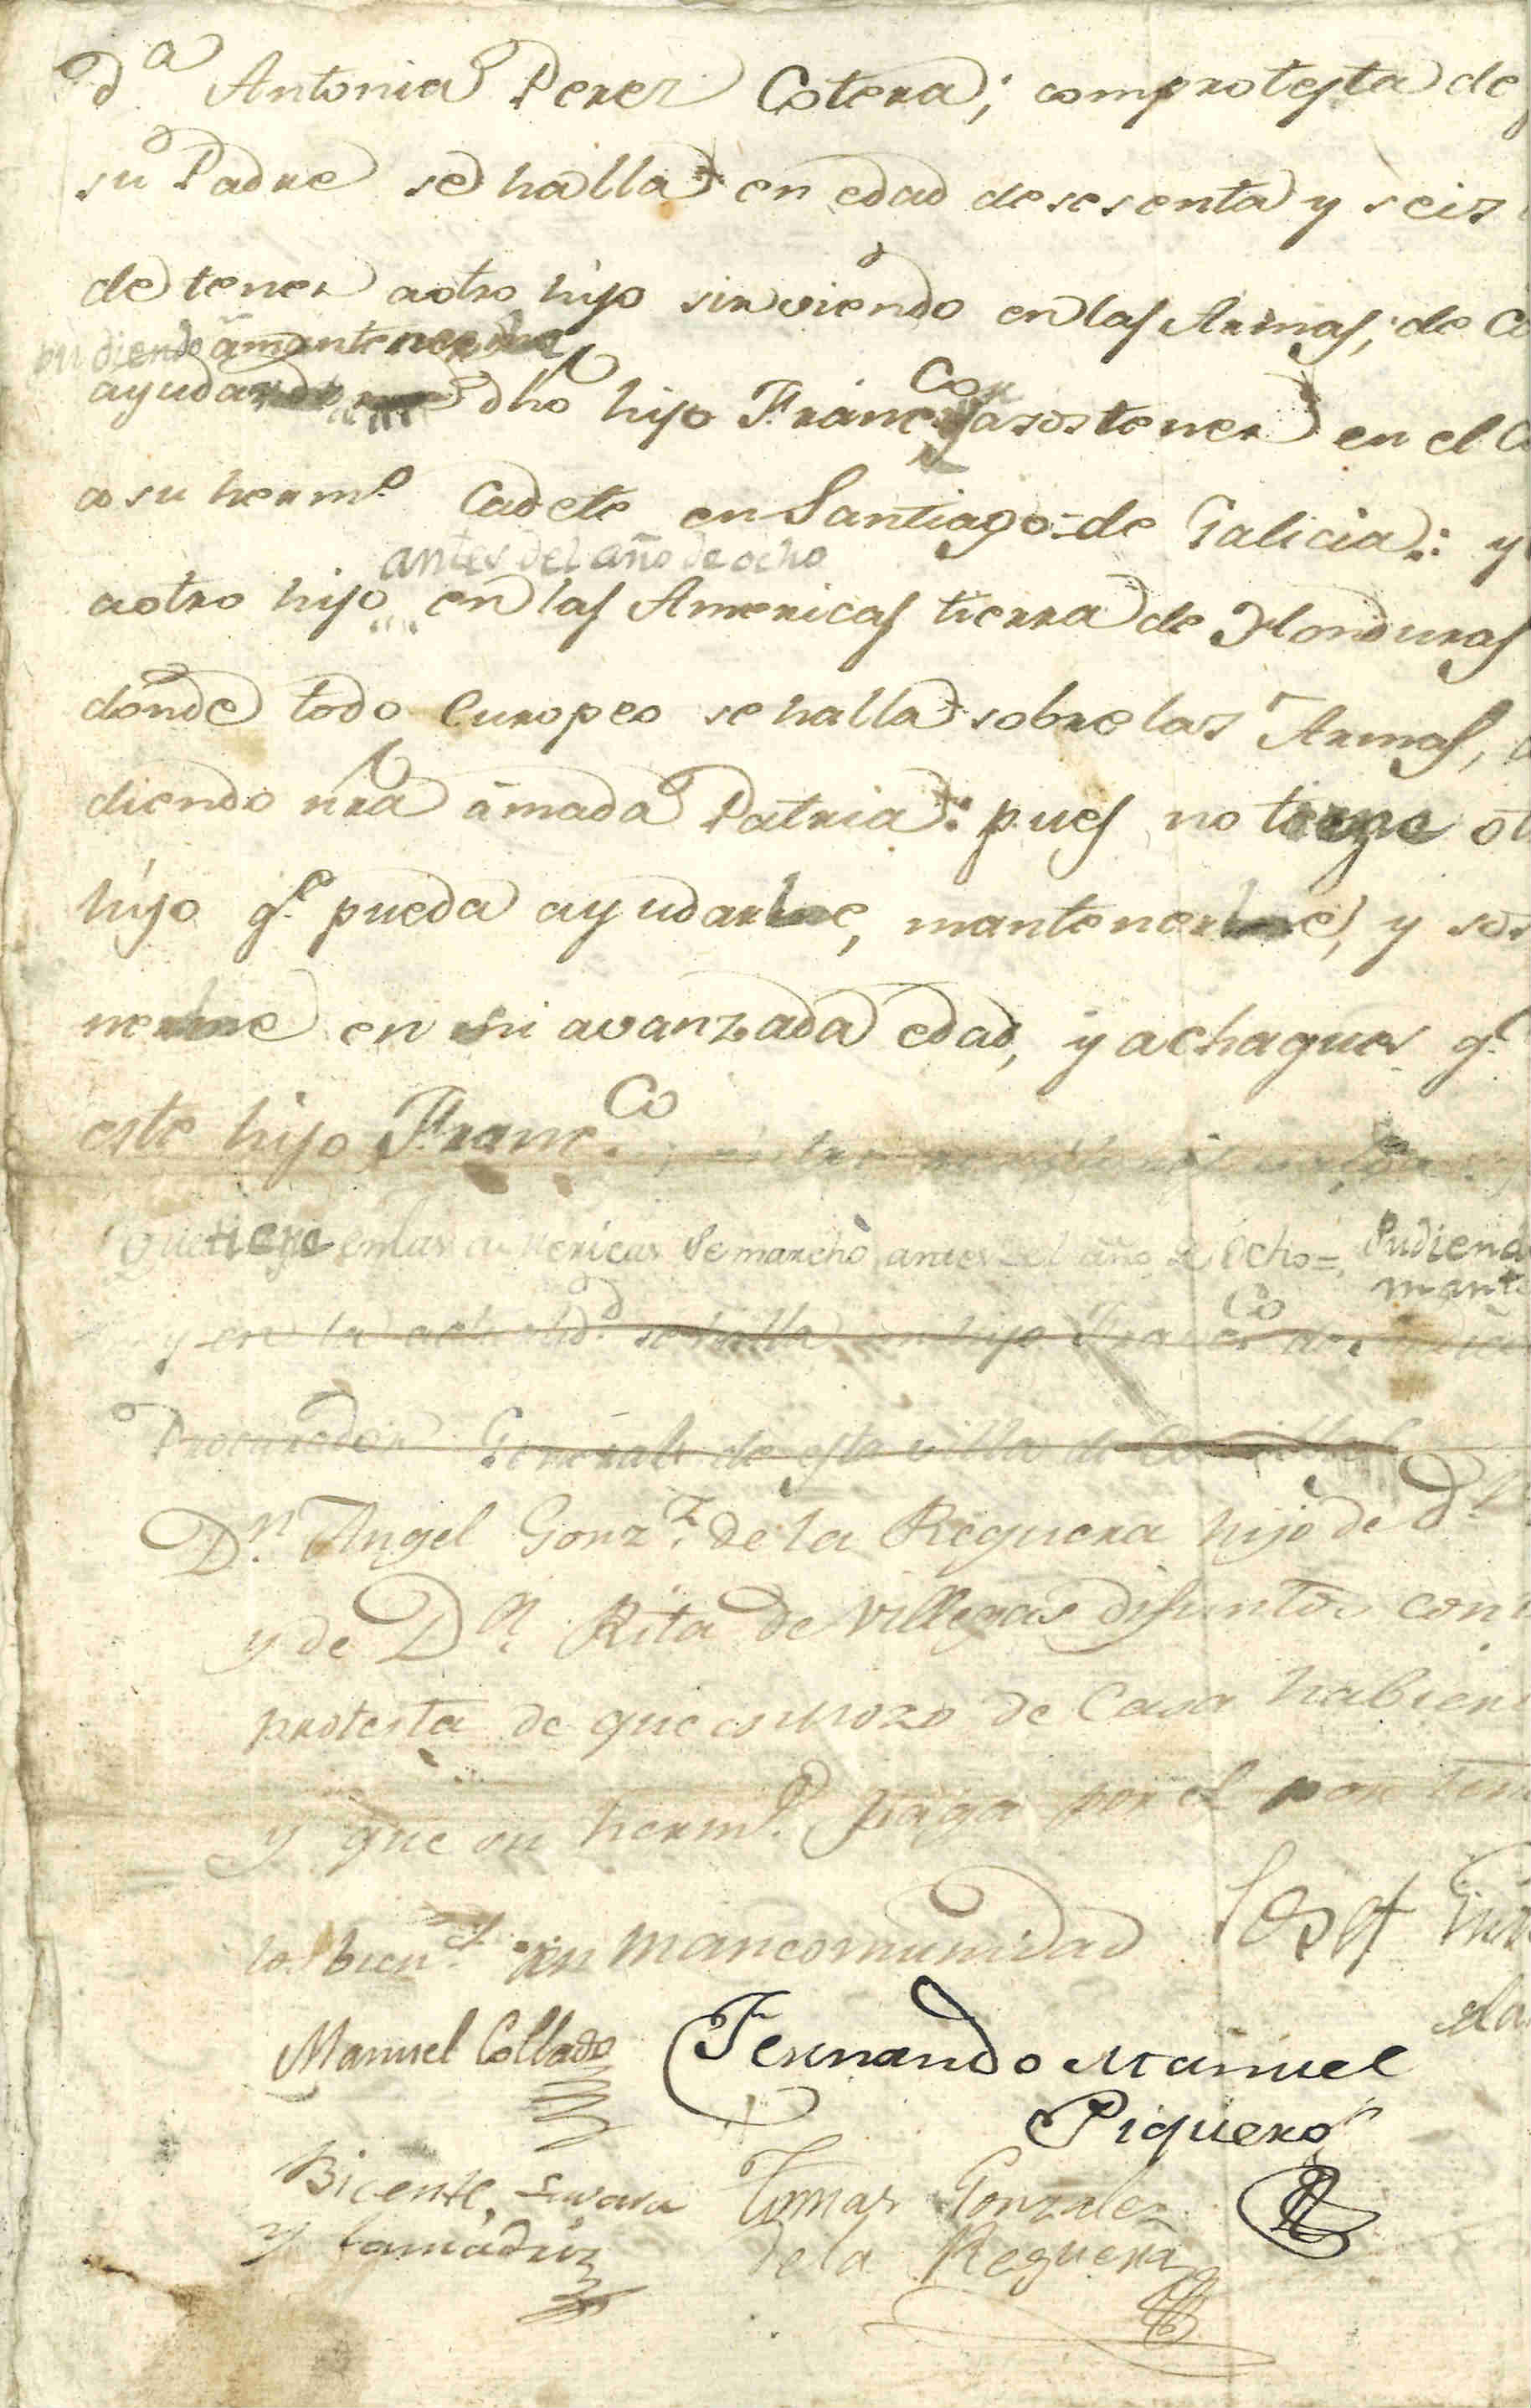 d.ª Antonia Perez Cotera; comprotesta de
su Padre se halla en edad de sesenta y seis
de tener aotro hijo sirviendo en las Armas; de
pudiendo amantenerle
ayudar dho hijo Franc.co a sostener en el
a su herm.º Cadete en Santiago de Galicia: y
antes del año de ocho
aotro hijo en las Americas tierra de Honduras
donde todo europeo se halla sobre las Armas,
diendo nra amada Patria: pues no tiene
hijo q.e pueda ayudarle, mantenerle, y sos
nerle en su avanzada edad, y achaques q.e
este hijo Franc.co
que tiene en las americas Se marchò antes del año de ocho= Pudiend
mant
y en la actualid.d se halla un hijo Franc.co
Procurador General de esta villa de
D.n Angel Gonz.z de la Reguera hijo de d.n
y de D.ª Rita de Villegas difuntos con
protesta de que es mozo de Casa habier
y que su herm.º paga por el por ten
los bien.s en mancomunidad Josef
Manuel Collado Fernando Manuel
Piquero
Bicente Tomas Gonzalez
y Lamadriz de la Reguera